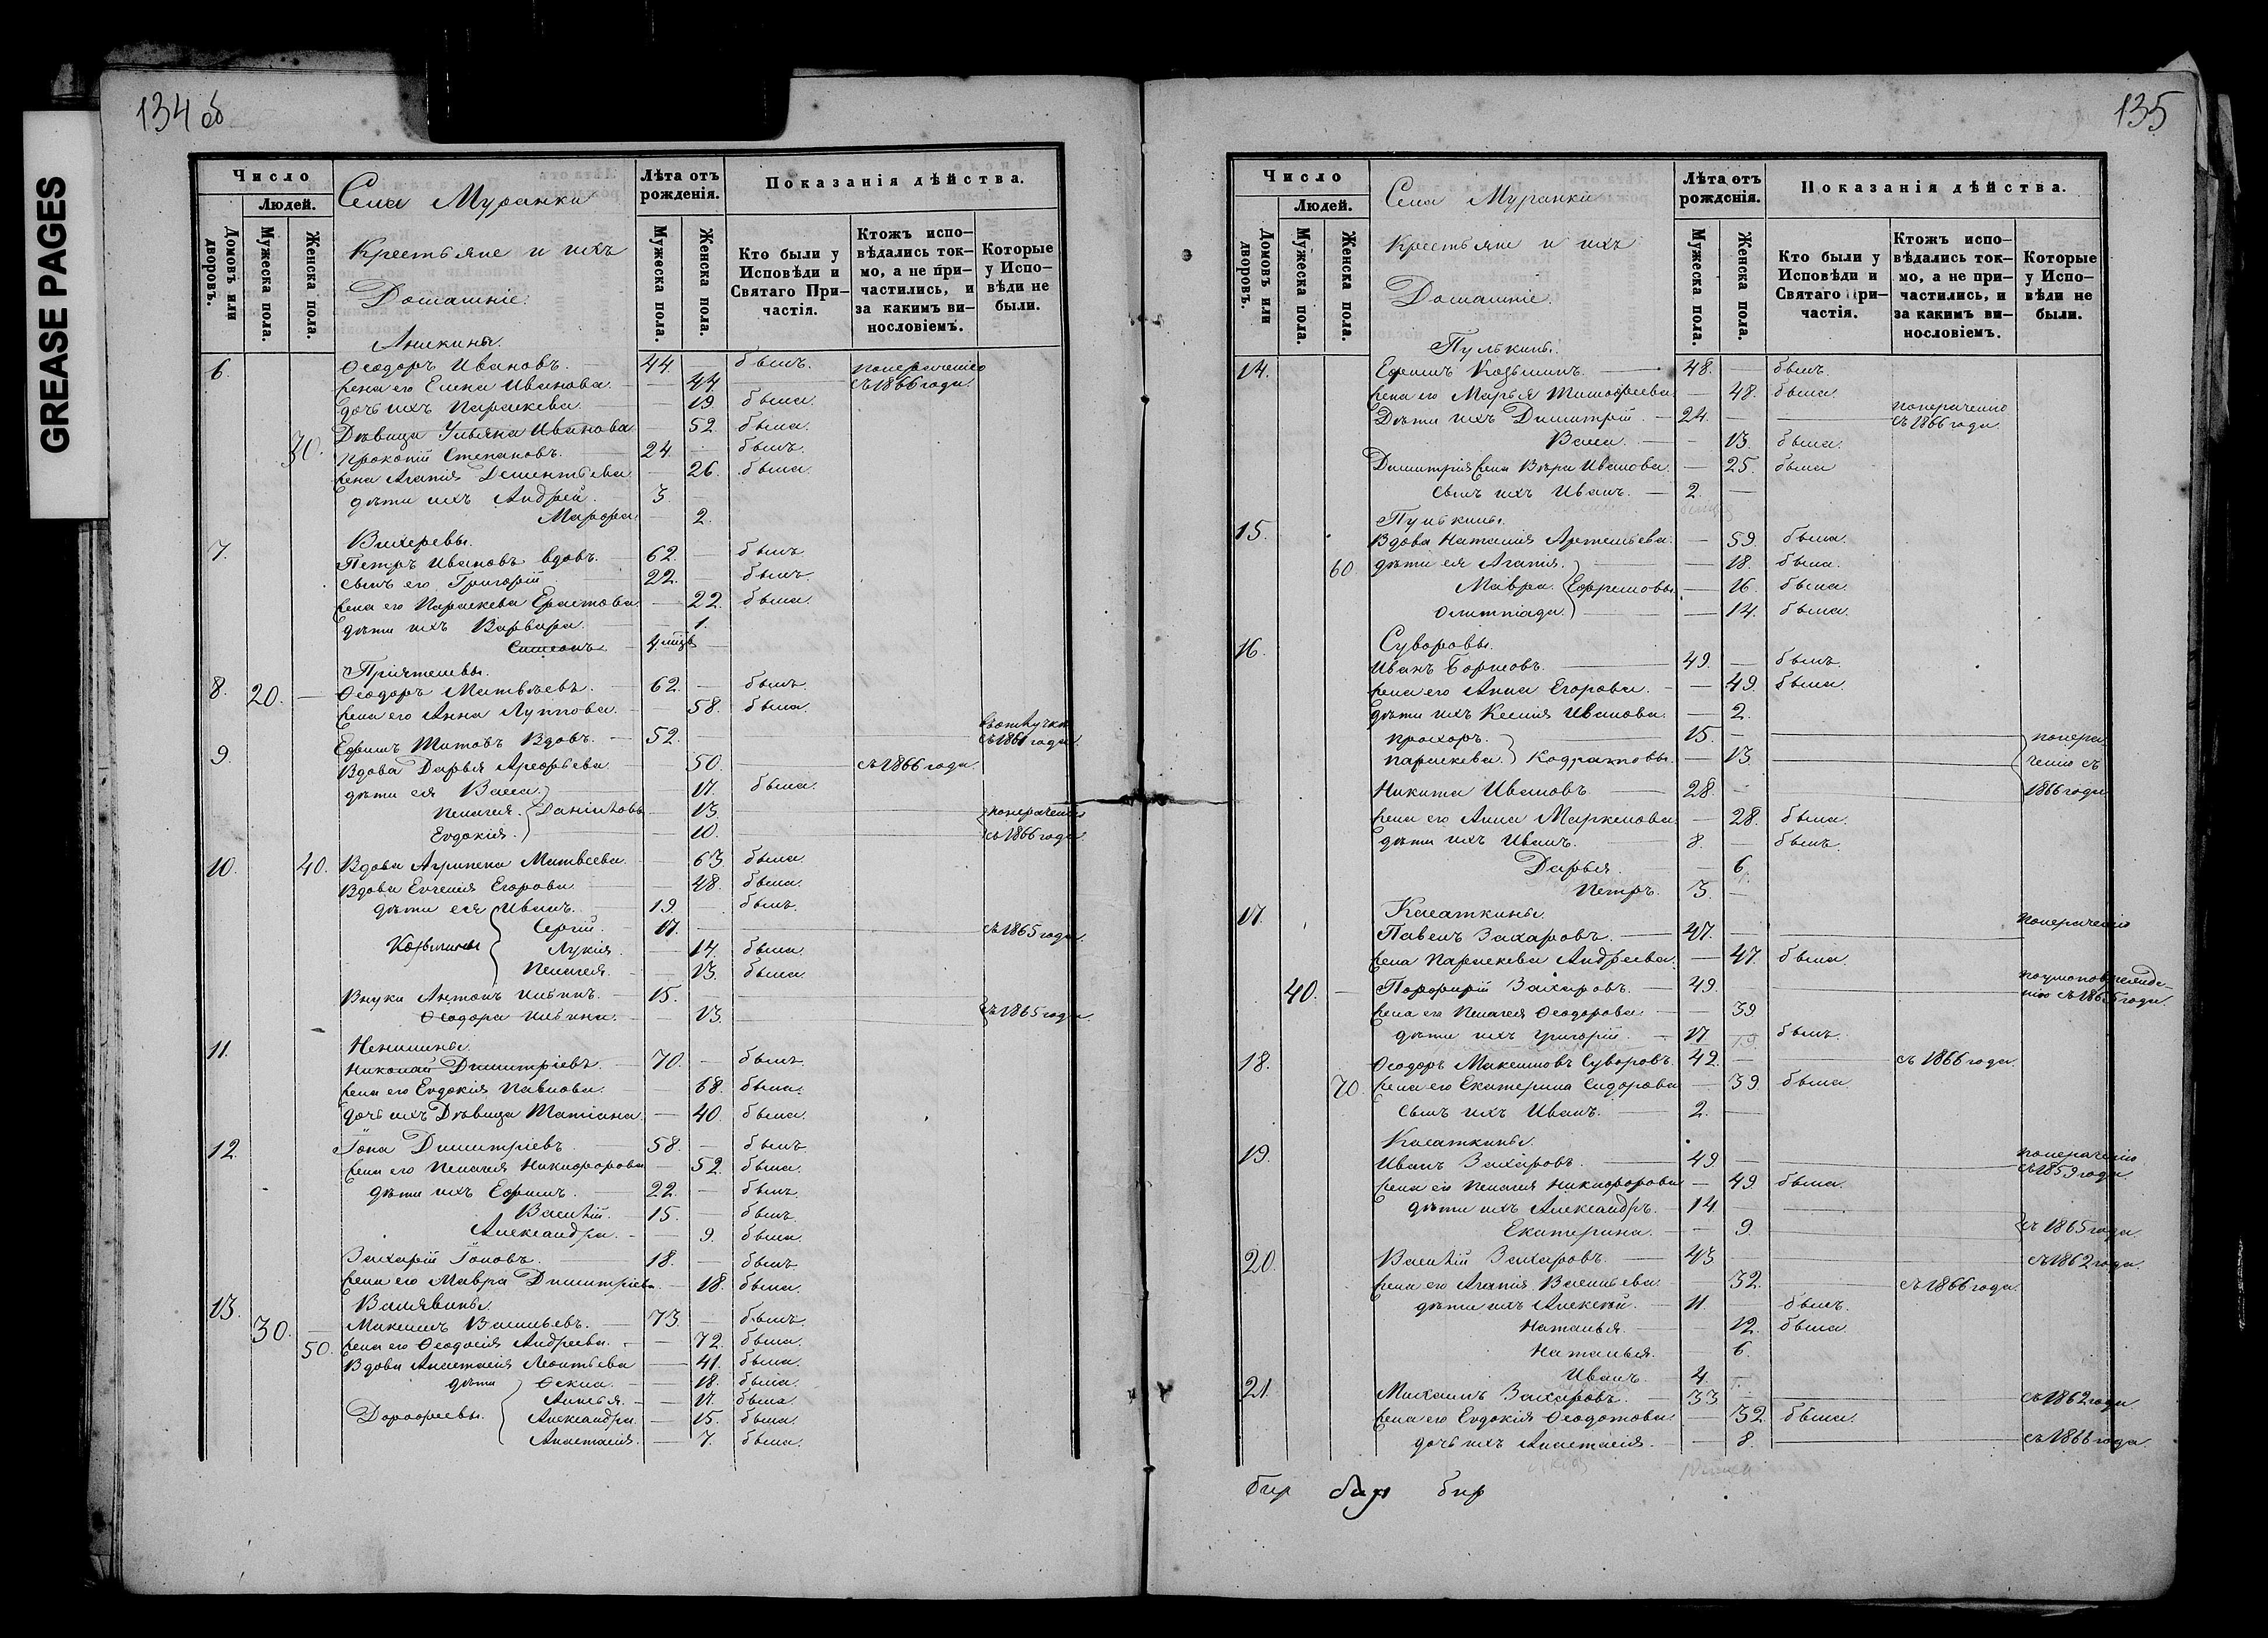 GREASE PAGES
134 об
Число
Людей.
Домовъ или дворовъ.
Мужеска пола.
Женска пола.
Села Муранки
Крестьяне и ихъ
Домашніе.
Лѣта отъ рожденія.
Мужеска пола.
Женска пола.
Показанія дѣйства.
Кто были у Исповѣди и Святаго Причастія.
Ктожъ исповѣдались токмо, а не причастились, и за какимъ винословіемъ.
Которые у Исповѣди не были.
Аникины.
6. Ѳеодоръ Ивановъ. 44 былъ.
жена его Елена Иванова. — 44 понераченію съ 1866 года.
дочь ихъ Параскева. — 19 была.
Дѣвица Ульяна Иванова — 52. была.
30. Прокопій Степановъ. 24. — былъ.
жена Агапія Дементьева — 26. была.
дѣти ихъ Андрей. 3. —
Марфа. — 2.
7. Вихеревы.
Петръ Ивановъ вдовъ. 62. — былъ
сынъ его Григорій 22. былъ.
жена его Параскева Ерастова — 22. была.
дѣти ихъ Варвара. — 1.
Симеонъ — 4 мцв —
Пріятелевы.
8. 20. — Ѳеодоръ Матвѣевъ. 62. — былъ.
жена его Анна Луппова. — 58. была.
Ефимъ Титовъ Вдовъ. — 52. — въ отлучкѣ съ 1861 года.
9. Вдова Дарья Арефьева — 50. съ 1866 года.
дѣти ея Васса. — 17. была.
Пелагея. Даніиловы — 13.
Евдокія. — 10. понераченію съ 1866 года.
10. 40. Вдова Агрипена Матвеева. — 63. была.
Вдова Евгенія Егорова — 48. была.
дѣти ея Иванъ. 19. — былъ.
Сергій. 17. съ 1865 года.
Козьмины Лукія. — 14. была.
Пелагея. — 13. была.
Внуки Антонъ Ильинъ. 15. —
Ѳеодора Ильина. — 13. съ 1865 года.
11. Ненилины.
Николай Димитріевъ. — 70. — былъ.
жена его Евдокія Павлова. — 68. была.
дочь ихъ Дѣвица Татіана. — 40. была.
12. Іона Димитріевъ. 58. — былъ
жена его Пелагея Никифорова — 52. была.
дѣти ихъ Ефимъ. 22. — былъ.
Василій. — 15. — былъ.
Александра. — 9. была.
Захарій Іоновъ. 18. — былъ
жена его Мавра Димитріева. — 18. была.
13. Валявины.
30. — Максимъ Васильевъ. — 73. — былъ
50. жена его Ѳеодосія Андреева. — 72. была.
Вдова Анастасія Леонтьева — 41. была.
дѣти Ѳекла. — 18. была.
Анисья. — 17. была
Дорофеевы. Александра. — 15. была.
Анастасія. — 7. была.
135
Число
Людей.
Домовъ или дворовъ.
Мужеска пола.
Женска пола.
Села Муранки
Крестьяне и ихъ
Домашніе.
Лѣта отъ рожденія.
Мужеска пола.
Женска пола.
Показанія дѣйства.
Кто были у Исповѣди и Святаго Причастія.
Ктожъ исповѣдались токмо, а не причастились, и за какимъ винословіемъ.
Которые у Исповѣди не были.
Пулькины.
14. Ефимъ Козьминъ. — 48. — былъ.
жена его Марья Тимофеева. — 48. была.
Дѣти ихъ Димитрій. — 24. — понераченію съ 1866 года.
Васса. — 13. была.
Димитрія жена Вѣра Иванова. — 25. была
сынъ ихъ Иванъ. — 2. —
15. Пулькины.
Вдова Наталія Артемьева. — 59. была.
60. дѣти ея Агапія. — 18. была.
Мавра. Ефремовы. — 16. была.
Олимпіада. — 14. была.
16. Суворовы.
Иванъ Борисовъ. 49. — былъ.
жена его Анна Егорова. — 49. была.
дѣти ихъ Ксенія Иванова. — 2.
Прохоръ. 15. — понера
Параскева. Кодратовы. — 13 ченію съ
Никита Ивановъ 28. — 1866 года
жена его Анна Маркелова. — 28. была.
дѣти ихъ Иванъ. 8. — былъ.
Дарья. — 6.
Петръ. 3. —
17. Касаткины.
Павелъ Захаровъ. — 47. — понераченію
жена Параскева Андреева. — 47. была.
40. — Порфирій Захаровъ. — 49.
жена его Пелагея Ѳеодорова. — 39
дѣти ихъ Григорій. 17 былъ.
18. Ѳеодоръ Максимовъ Суворовъ. 42. — съ 1866 года.
70. жена его Екатерина Сидорова — 39. была.
сынъ ихъ Иванъ. — 2. —
19. Касаткины.
Иванъ Захаровъ. — 49. — понераченію съ 1859 года.
жена его Пелагея Никифорова — 49. была.
дѣти ихъ Александръ. — 14
Екатерина. — 9. съ 1865 года.
20. Василій Захаровъ. — 43. съ 1862 года.
жена его Агапія Васильева. — 32. съ 1866 года.
дѣти ихъ Алексѣй. — 11. былъ.
Наталья. — 12. была.
Наталья. — 6.
Иванъ. 4.
21. Михаилъ Захаровъ. — 33 съ 1862 года.
жена его Евдокія Ѳеодотова. — 32. была.
дочь ихъ Анастасія. — 8. съ 1866 года.